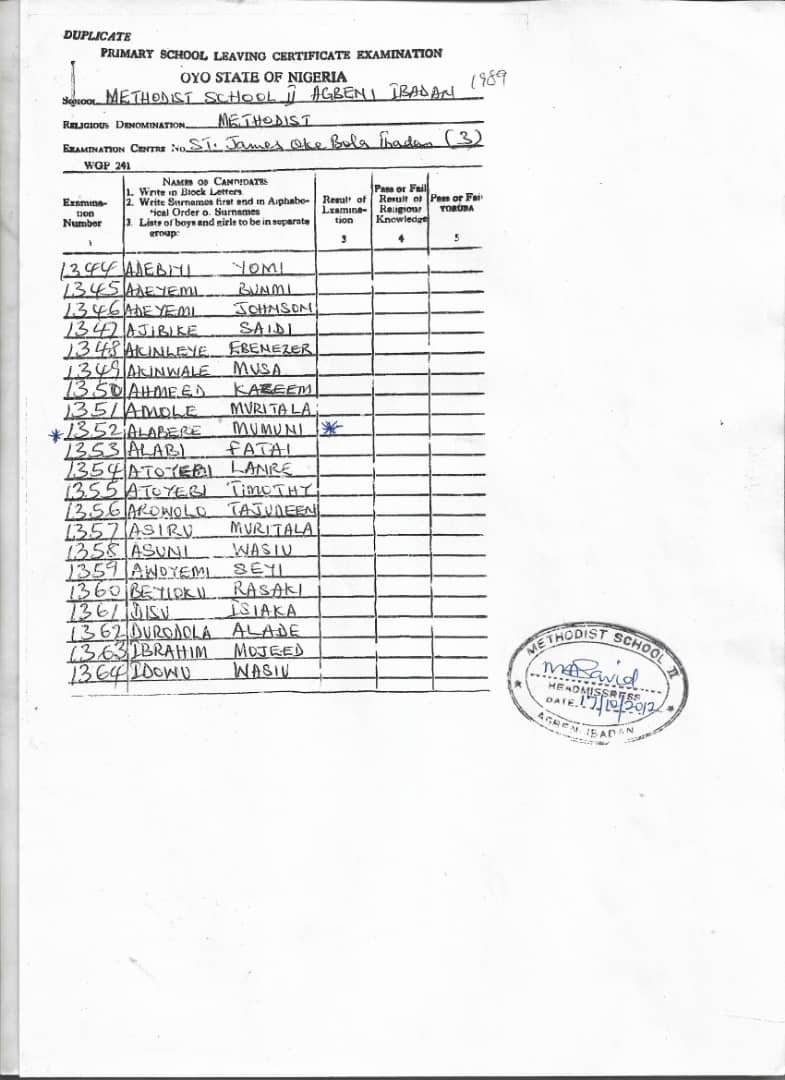 DUPLICATE
PRIMARY SCHOOL LEAVING CERTIFICATE EXAMINATION
OYO STATE OF NIGERIA
1989
SCHOOL METHODIST SCHOOL II AGBENI IBADAN
RELIGIOUS DENOMINATION METHODIST
EXAMINATION CENTRE No. ST. James Oke Bola Ibadan (3)
WGP 241
Examination Number 1
NAMES OF CANDIDATES
1. Write in Block Letters
2. Write Surnames first and in Alphabetical Order o. Surnames
3. Lists of boys and girls to be in separate group:
Result of Examination 3
Pass or Fail Result of Religious Knowledge 4
Pass or Fai YORUBA 5
1344 ADEBIYI YOMI
1345 ADEYEMI BUNMI
1346 ADEYEMI JOHNSON
1347 AJIBIKE SAIDI
1348 AKINLEYE EBENEZER
1349 AKINWALE MUSA
1350 AHMEED KAZEEM
1351 AMOLE MURITALA
*1352 ALABERE MUMUNI *
1353 ALABI FATAI
1354 ATOYEBI LANRE
1355 ATOYEBI TIMOTHY
1356 AROWOLO TAJUDEEN
1357 ASIRU MURITALA
1358 ASUNI WASIU
1359 AWOYEMI SEYI
1360 BEYIOKU RASAKI
1361 DISU ISIAKA
1362 DURODOLA ALADE
1363 IBRAHIM MOJEED
1364 IDOWU WASIU
METHODIST SCHOOL II
HEADMISSRESS
DATE 17/10/2012
AGBENI IBADAN